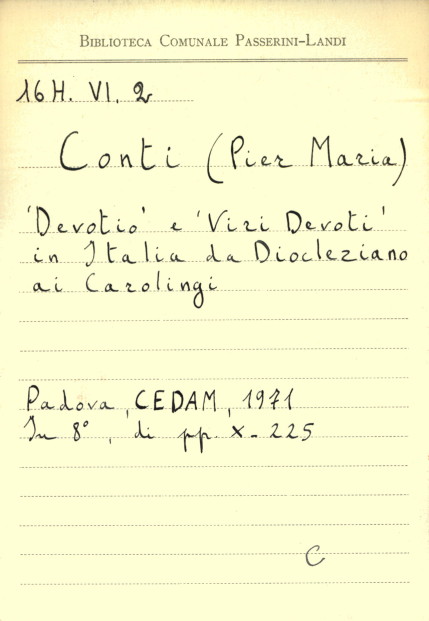 BIBLIOTECA COMUNALE PASSERINI-LANDI
16 H. VI. 2
Conti (Pier Maria)
'Devotio' e 'Viri Devoti'
in Italia da Diocleziano
ai Carolingi
Padova, CEDAM, 1971
In 8°, di pp. X-225
C